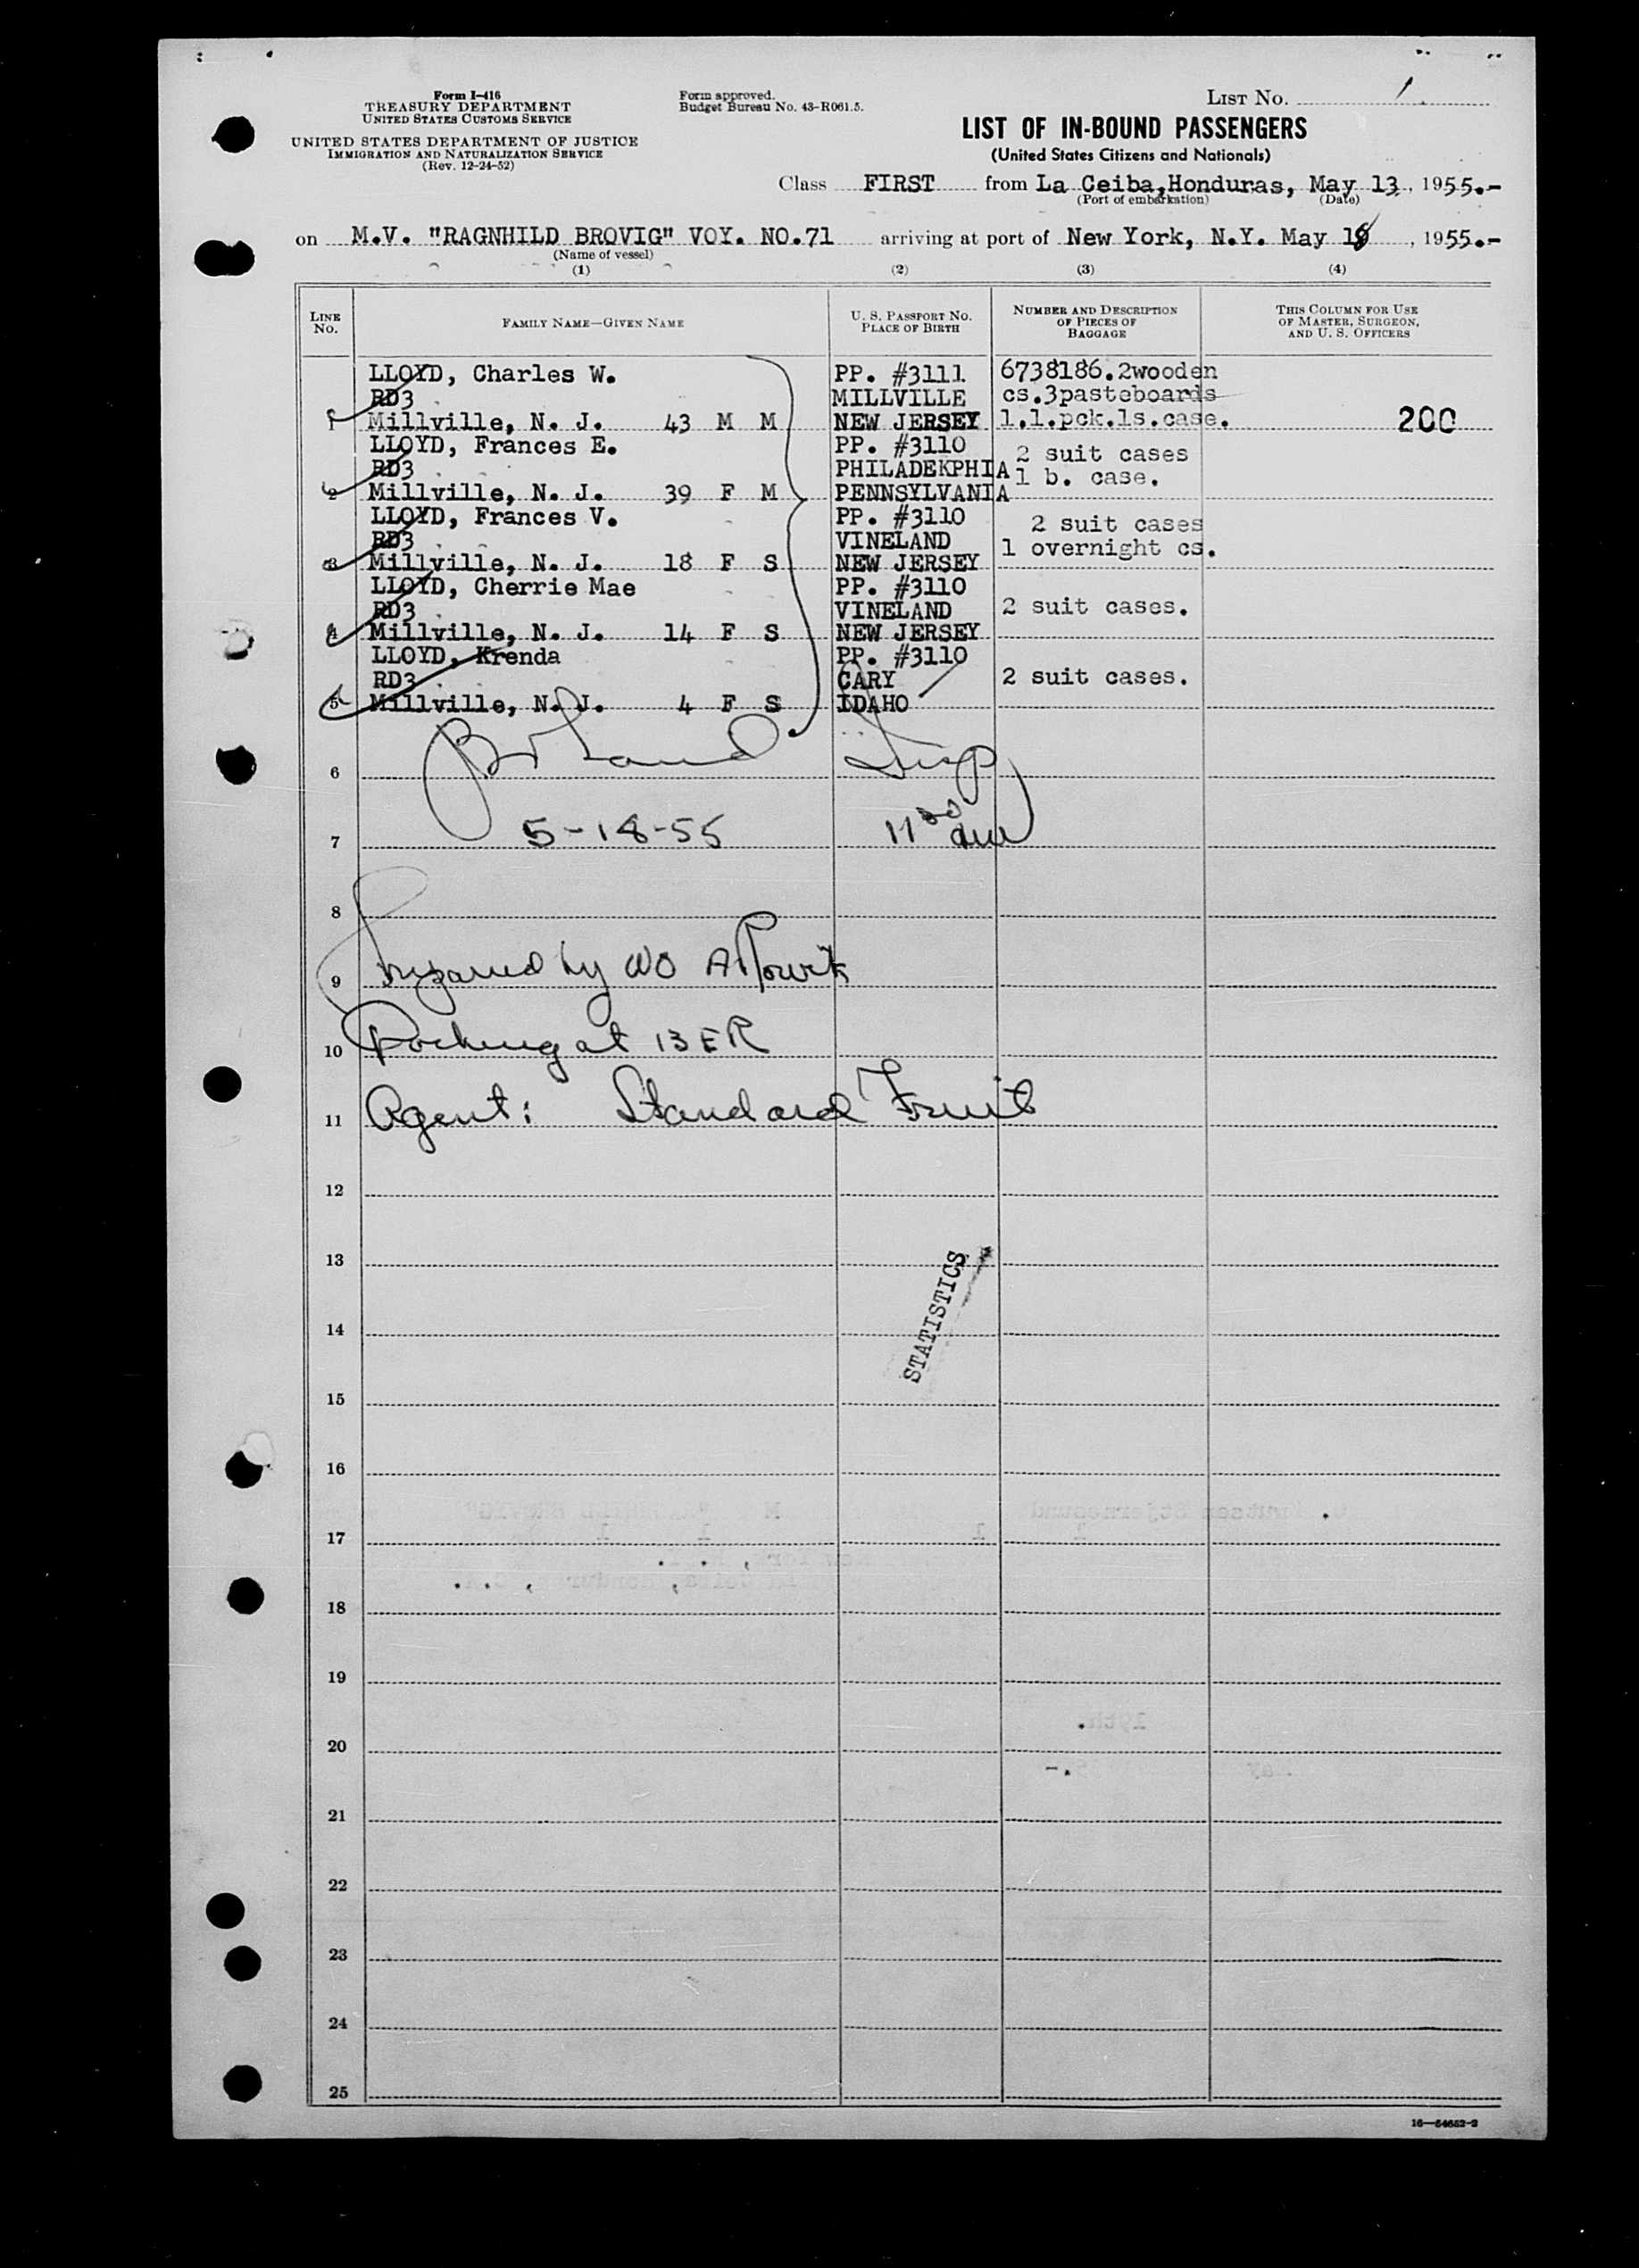 Form I-416
TREASURY DEPARTMENT
UNITED STATES CUSTOMS SERVICE
UNITED STATES DEPARTMENT OF JUSTICE
IMMIGRATION AND NATURALIZATION SERVICE
(Rev. 12-24-52)
Form approved.
Budget Bureau No. 43-R061.5.
LIST No. 1
LIST OF IN-BOUND PASSENGERS
(United States Citizens and Nationals)
Class FIRST from La Ceiba,Honduras, May 13, 1955.-
(Port of embarkation) (Date)
on M.V. "RAGNHILD BROVIG" VOY. NO.71 arriving at port of New York, N.Y. May 18, 1955.-
(Name of vessel)
(1) (2) (3) (4)
LINE No. FAMILY NAME—GIVEN NAME U. S. PASSPORT No. PLACE OF BIRTH NUMBER AND DESCRIPTION OF PIECES OF BAGGAGE THIS COLUMN FOR USE OF MASTER, SURGEON, AND U. S. OFFICERS
LLOYD, Charles W. PP. #3111 6738186.2wooden
RD3 MILLVILLE cs.3pasteboards
1 Millville, N. J. 43 M M NEW JERSEY 1.1.pck.1s.case. 200
LLOYD, Frances E. PP. #3110 2 suit cases
RD3 PHILADEKPHIA 1 b. case.
2 Millville, N. J. 39 F M PENNSYLVANIA
LLOYD, Frances V. PP. #3110 2 suit cases
RD3 VINELAND 1 overnight cs.
3 Millville, N. J. 18 F S NEW JERSEY
LLOYD, Cherrie Mae PP. #3110
RD3 VINELAND 2 suit cases.
4 Millville, N. J. 14 F S NEW JERSEY
LLOYD, Krenda PP. #3110
RD3 CARY 2 suit cases.
5 Millville, N. J. 4 F S IDAHO
6
5-18-55 11
7
8
9 Prepared by WO
10 Docking at 13 ER
11 Agent: Standard Fruit
12
13
STATISTICS
14
15
16
17
18
19
20
21
22
23
24
25
16—54652-2